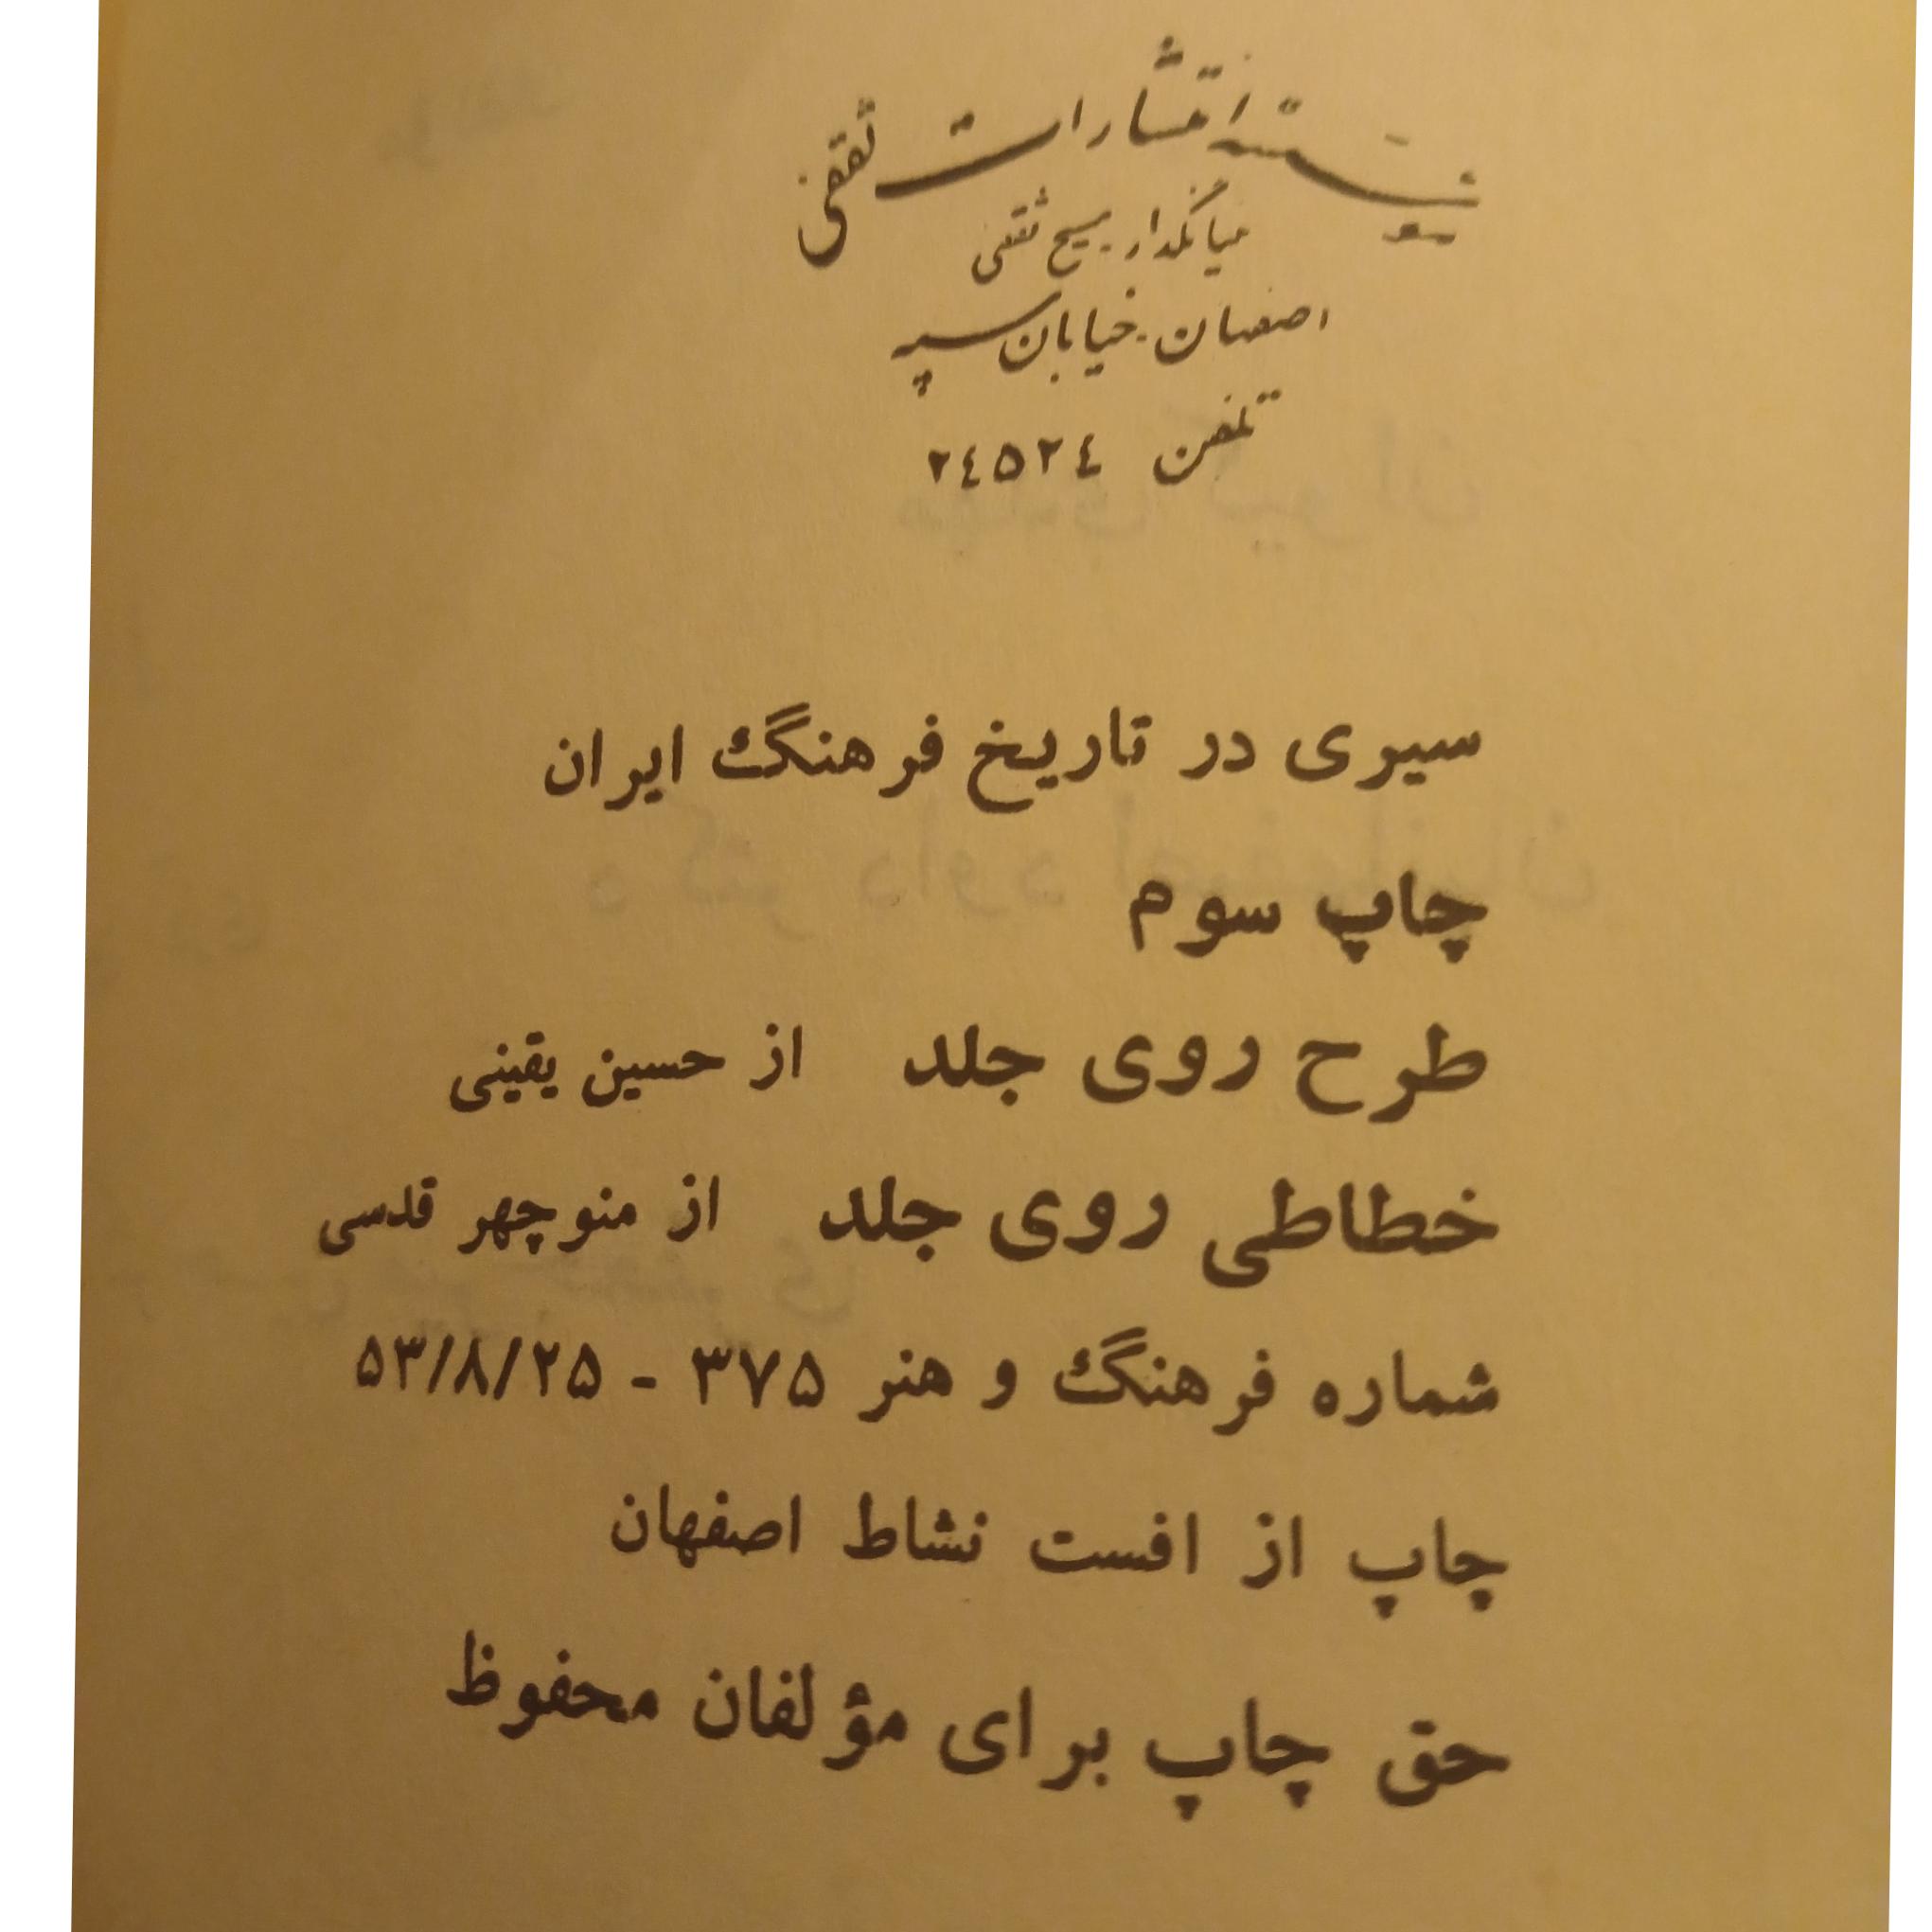 مؤسسه انتشارات ثقفی
بنیانگذار. مسیح ثقفی
اصفهان. خیابان سپه
تلفن ۲٤۵۲٤
سیری در تاریخ فرهنگ ایران
چاپ سوم
طرح روی جلد از حسین یقینی
خطاطی روی جلد از منوچهر قدسی
شماره فرهنگ و هنر ۳۷۵ - ۵۳/۸/۲۵
چاپ از افست نشاط اصفهان
حق چاپ برای مؤلفان محفوظ